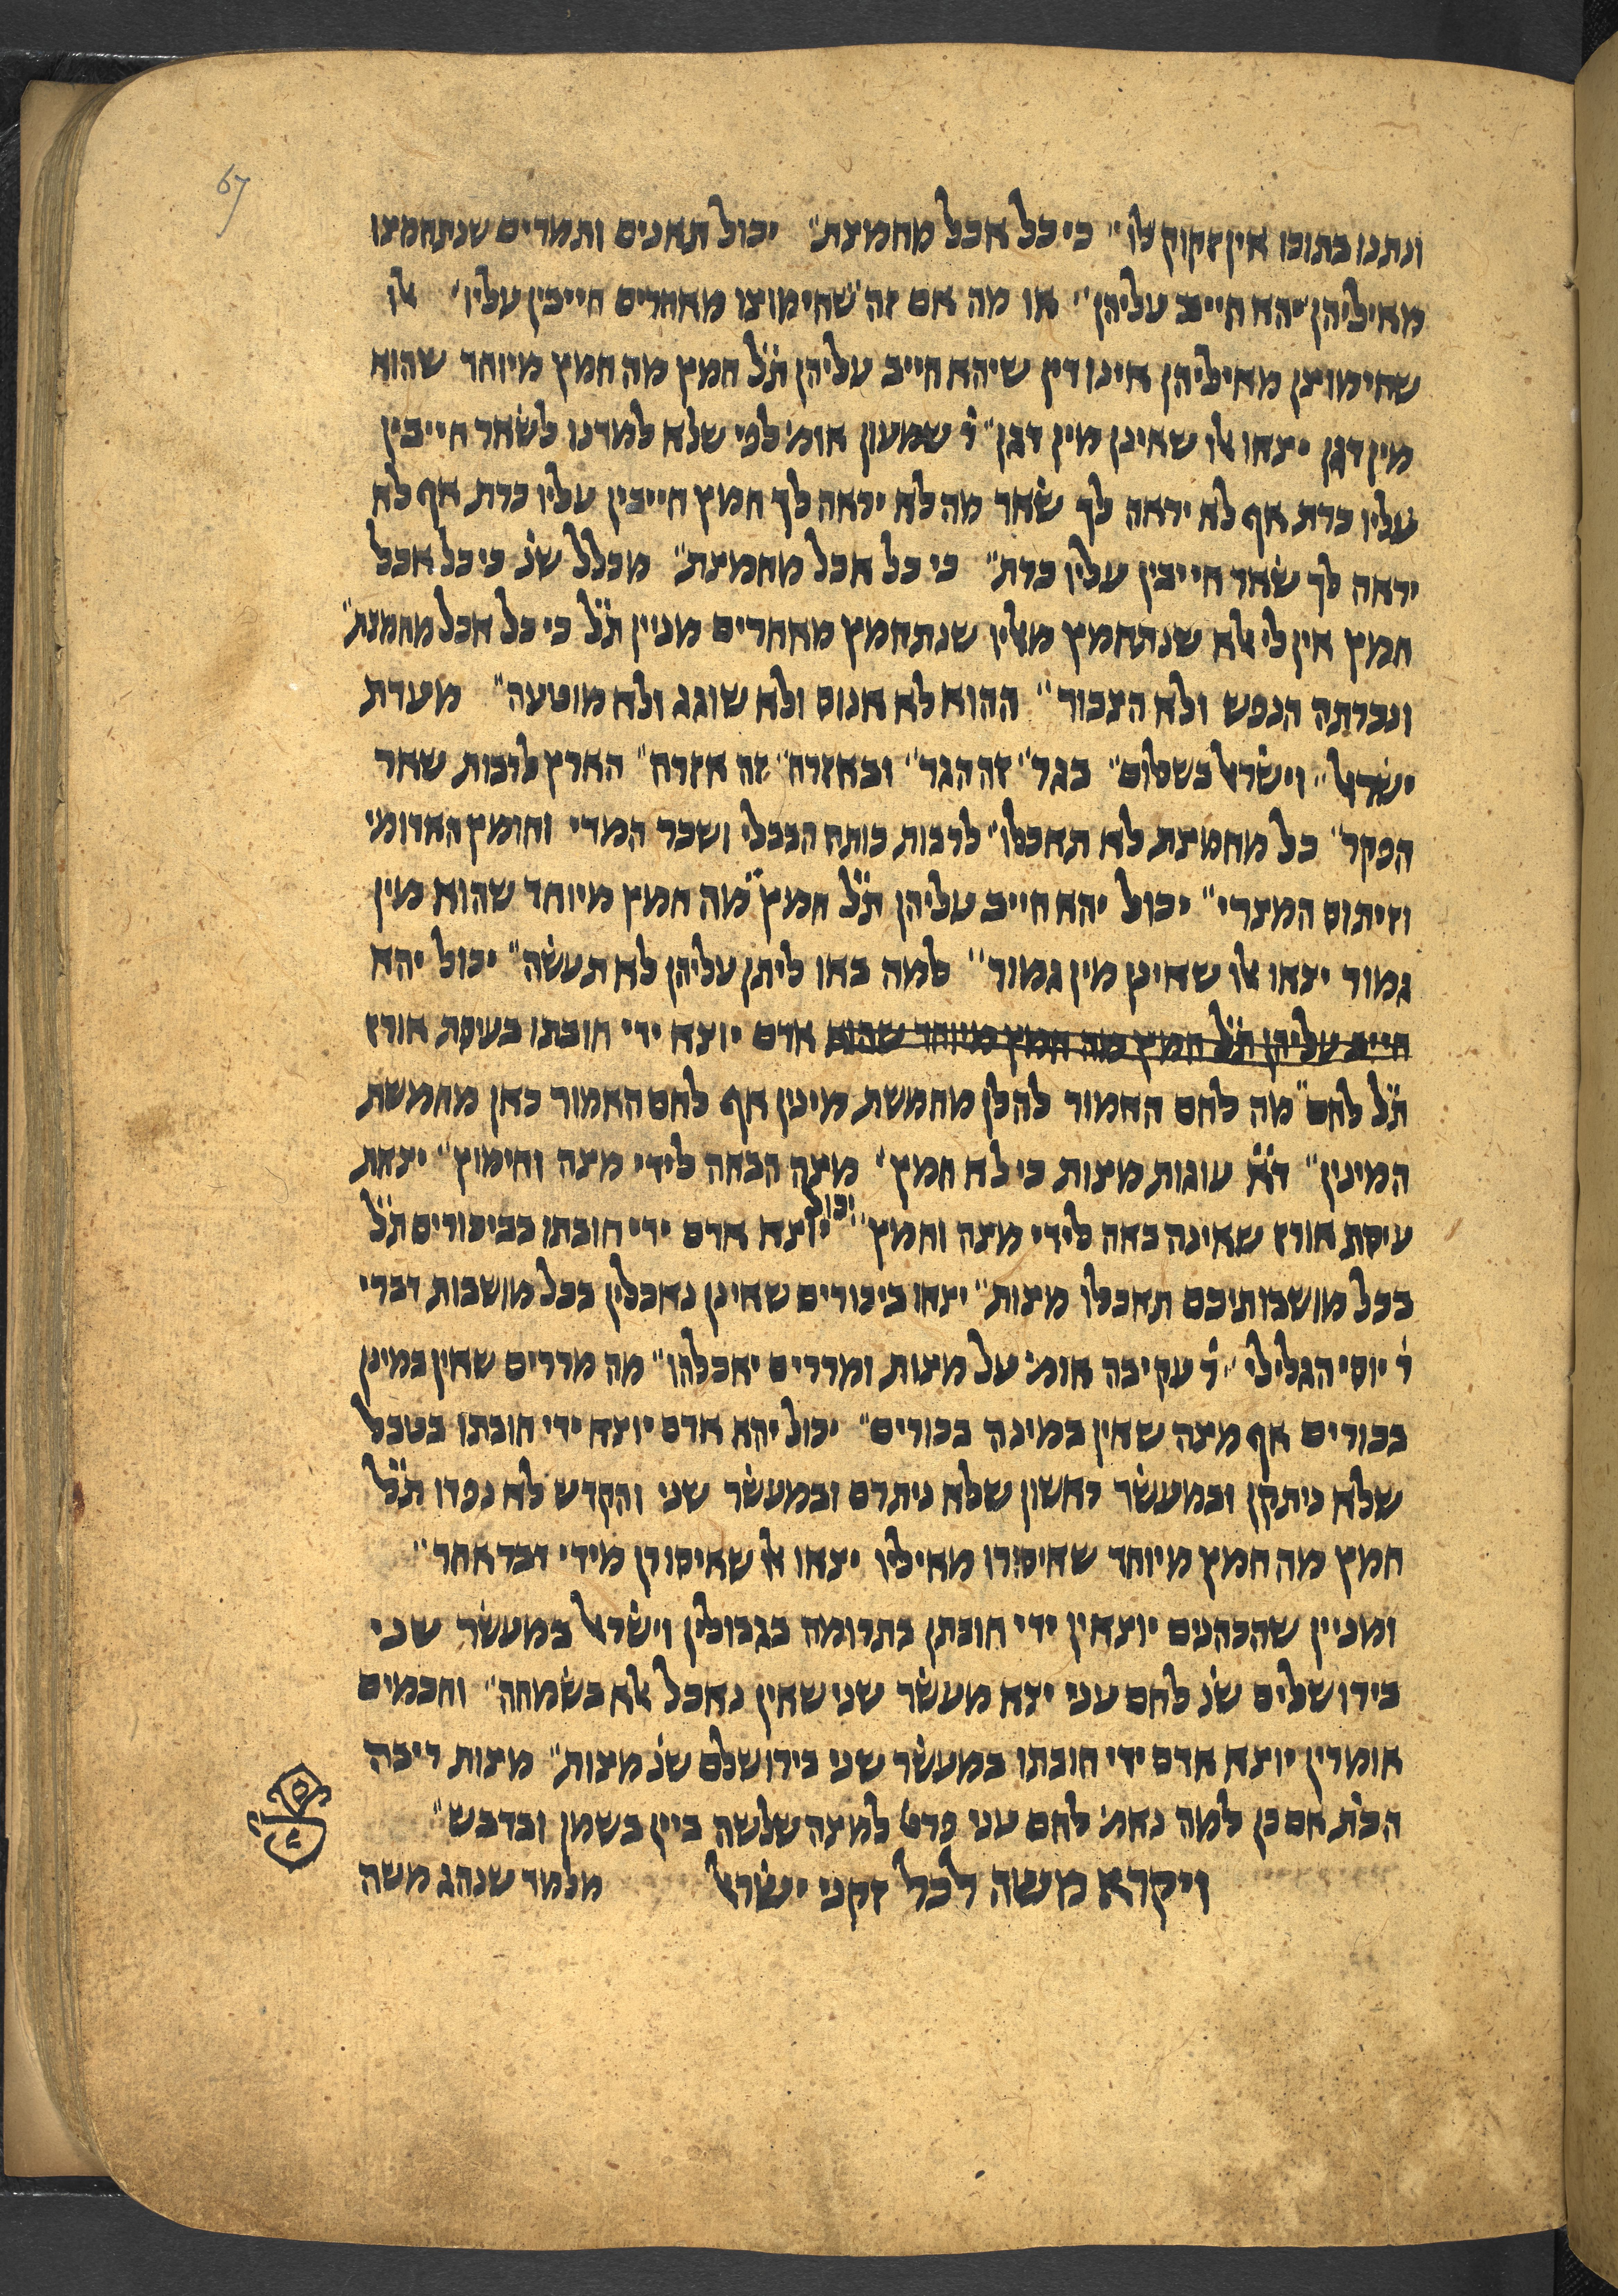 67
ונתנו בתוכו אין זקוק לו״ כי כל אכל מחמצת״ יכול תאנים ותמרים שנתחמצו
מאיליהן יהא חייב עליהן״ או מה אם זה שחימוצו מאחרים חייבין עליו׳ אלו
שחימוצן מאיליהן אינו דין שיהא חייב עליהן ת׳׳ל חמץ מה חמץ מיוחד שהוא
מין דגן יצאו אלו שאינן מין דגן״ ר׳ שמעון אומ׳ לפי שלא למדנו לשאר חייבין
עליו כרת אף לא יראה לך שאר מה לא יראה לך חמץ חייבין עליו כרת אף לא
יראה לך שאר חייבין עליו כרת״ כי כל אכל מחמצת״ מכלל שנ׳ כי כל אכל
חמץ אין לי אלא שנתחמץ מאליו שנתחמץ מאחרים מניין ת׳׳ל כי כל אכל מחמצת״
ונכרתה הנפש ולא הצבור״ ההוא לא אנוס ולא שוגג ולא מוטעה״ מעדת
ישראל״ וישראל בשלום״ בגר״ זה הגר״ ובאזרח״ זה אזרח״ הארץ לרבות שאר
הפקר׳ כל מחמצת לא תאכלו״ לרבות כותח הבבלי ושכר המדי וחומץ האדומי
וזיתום המצרי״ יכול יהא חייב עליהן ת׳׳ל חמץ״ מה חמץ מיוחד שהוא מין
גמור יצאו אלו שאינן מין גמור״ למה באו ליתן עליהן לא תעשה״ יכול יהא
חייב עליהן ת׳׳ל חמץ מה חמץ מיוחד שהוא אדם יוצא ידי חובתו בעיסת אורז
ת׳׳ל לחם״ מה לחם האמור להלן מחמשת מינין אף לחם האמור כאן מחמשת
המינין״ ד׳׳א עוגות מצות כי לא חמץ׳ מצה הבאה לידי מצה וחימוץ״ יצאת
עיסת אורז שאינה באה לידי מצה וחמץ״ יכול יוצא אדם ידי חובתו בביכורים ת׳׳ל
בכל מושבותיכם תאכלו מצות״ יצאו ביכורים שאינן נאכלין בכל מושבות דברי
ר׳ יוסי הגלילי״ ר׳ עקיבה אומ׳ על מצות ומררים יאכלהו״ מה מררים שאין במינן
בכורים אף מצה שאין במינה בכורים״ יכול יהא אדם יוצא ידי חובתו בטבל
שלא ניתקן ובמעשר ראשון שלא ניתרם ובמעשר שני והקדש לא נפדו ת׳׳ל
חמץ מה חמץ מיוחד שאיסורו מאיליו יצאו אלו שאיסורן מידי דבר אחר״
ומניין שהכהנים יוצאין ידי חובתן בתרומה בגבולין וישראל במעשר שני
בירושלים שנ׳ לחם עני יצא מעשר שני שאין נאכל אלא בשמחה״ וחכמים
אומרין יוצא אדם ידי חובתו במעשר שני בירושלם שנ׳ מצות״ מצות ריבה
הכת׳ אם כן למה נאמ׳ לחם עני פרט למצה שלשה ביין בשמן ובדבש״
ויקרא משה לכל זקני ישראל מלמד שנהג משה